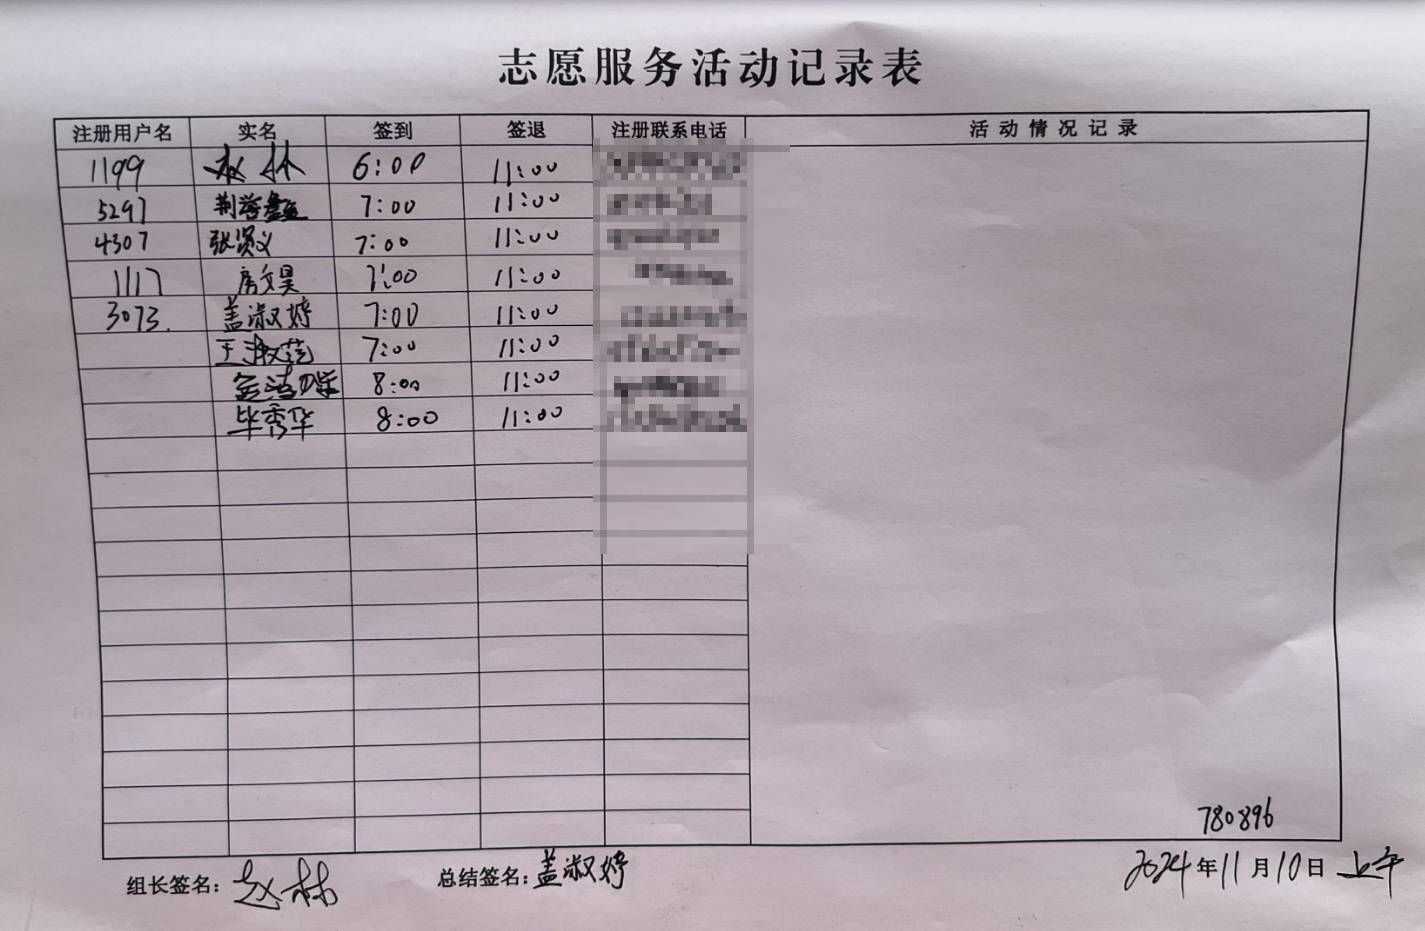 志愿服务活动记录表
注册用户名 实名 签到 签退 注册联系电话 活动情况记录
1199 赵林 6:00 11:00
5297 荆 7:00 11:00
4307 张贤义 7:00 11:00
1117 房文昊 7:00 11:00
3073. 盖淑婷 7:00 11:00
王淑范 7:00 11:00
8:00 11:00
毕秀华 8:00 11:00
780896
组长签名：赵林 总结签名：盖淑婷 2024年11月10日 上午